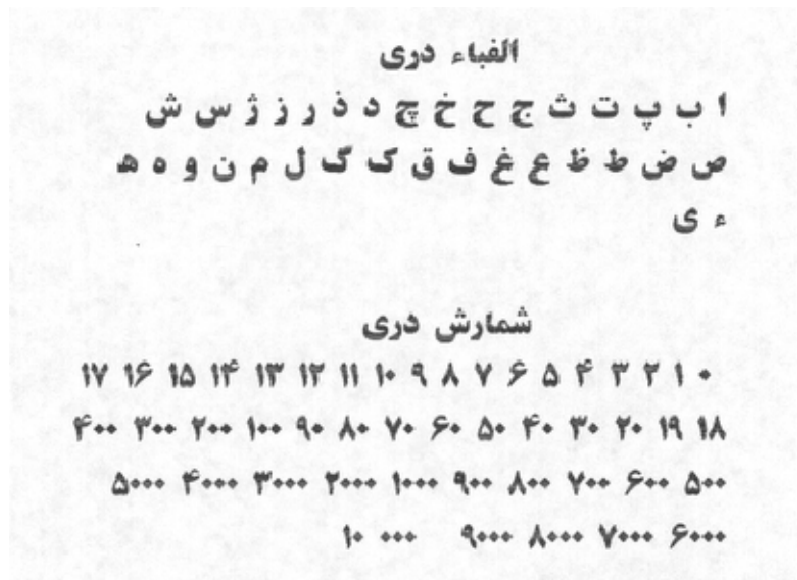 الفباء دری
ا ب پ ت ث ج ح خ چ د ذ ر ز ژ س ش
ص ض ط ظ ع غ ف ق ک گ ل م ن و ه ھ
ء ی
شمارش دری
۰ ۱ ۲ ۳ ۴ ۵ ۶ ۷ ۸ ۹ ۱۰ ۱۱ ۱۲ ۱۳ ۱۴ ۱۵ ۱۶ ۱۷
۱۸ ۱۹ ۲۰ ۳۰ ۴۰ ۵۰ ۶۰ ۷۰ ۸۰ ۹۰ ۱۰۰ ۲۰۰ ۳۰۰ ۴۰۰
۵۰۰ ۶۰۰ ۷۰۰ ۸۰۰ ۹۰۰ ۱۰۰۰ ۲۰۰۰ ۳۰۰۰ ۴۰۰۰ ۵۰۰۰
۶۰۰۰ ۷۰۰۰ ۸۰۰۰ ۹۰۰۰ ۱۰ ۰۰۰